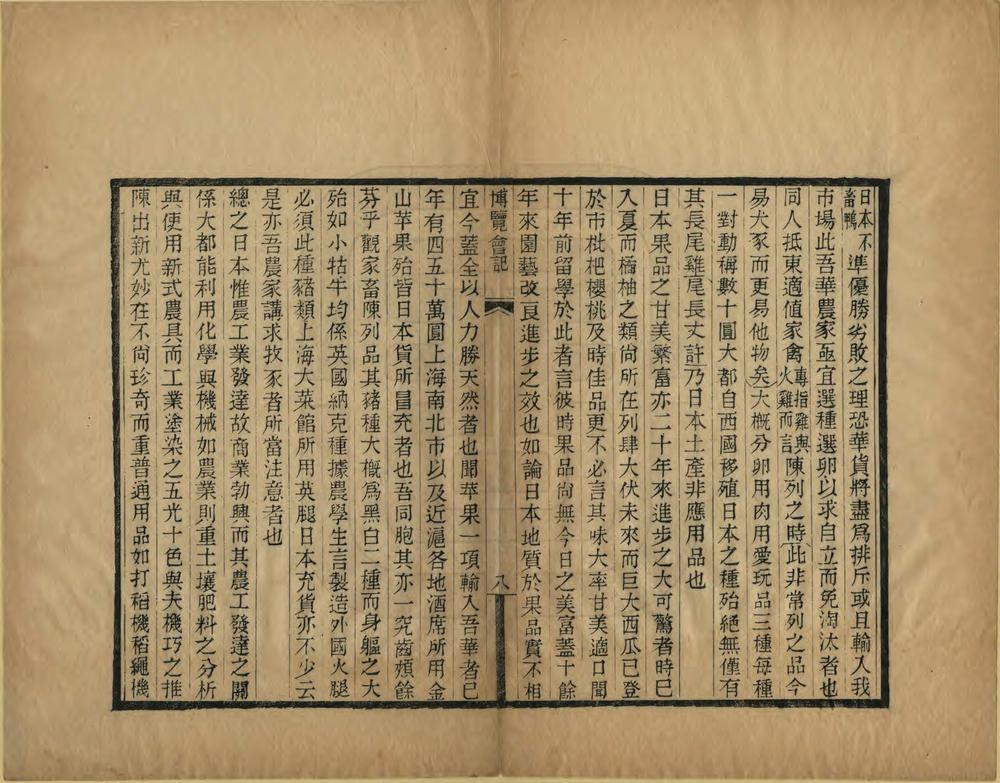 日本畜鴨不準優勝劣敗之理恐華貨將盡爲排斥或且輸入我
市場此吾華農家亟宜選種選卵以求自立而免淘汰者也
同人抵東適值家禽專指雞與火雞而言陳列之時此非常列之品今
易犬豕而更易他物矣大概分卵用肉用愛玩品三種每種
一對動稱數十圓大都自西國移殖日本之種殆絕無僅有
其長尾雞尾長丈許乃日本土產非應用品也
日本果品之甘美繁富亦二十年來進步之大可驚者時已
入夏而橘柚之類尙所在列肆大伏未來而巨大西瓜已登
於市枇杷櫻桃及時佳品更不必言其味大率甘美適口聞
十年前留學於此者言彼時果品尙無今日之美富蓋十餘
年來園藝改良進步之效也如論日本地質於果品實不相
博覽會記 八
宜今蓋全以人力勝天然者也聞苹果一項輸入吾華者已
年有四五十萬圓上海南北市以及近滬各地酒席所用金
山苹果殆皆日本貨所冒充者也吾同胞其亦一究齒頰餘
芬乎觀家畜陳列品其豬種大概爲黑白二種而身軀之大
殆如小牯牛均係英國納克種據農學生言製造外國火腿
必須此種豬類上海大菜館所用英腿日本充貨亦不少云
是亦吾農家講求牧豕者所當注意者也
總之日本惟農工業發達故商業勃興而其農工發達之關
係大都能利用化學與機械如農業則重土壤肥料之分析
與使用新式農具而工業塗染之五光十色與夫機巧之推
陳出新尤妙在不尙珍奇而重普通用品如打稻機稻繩機